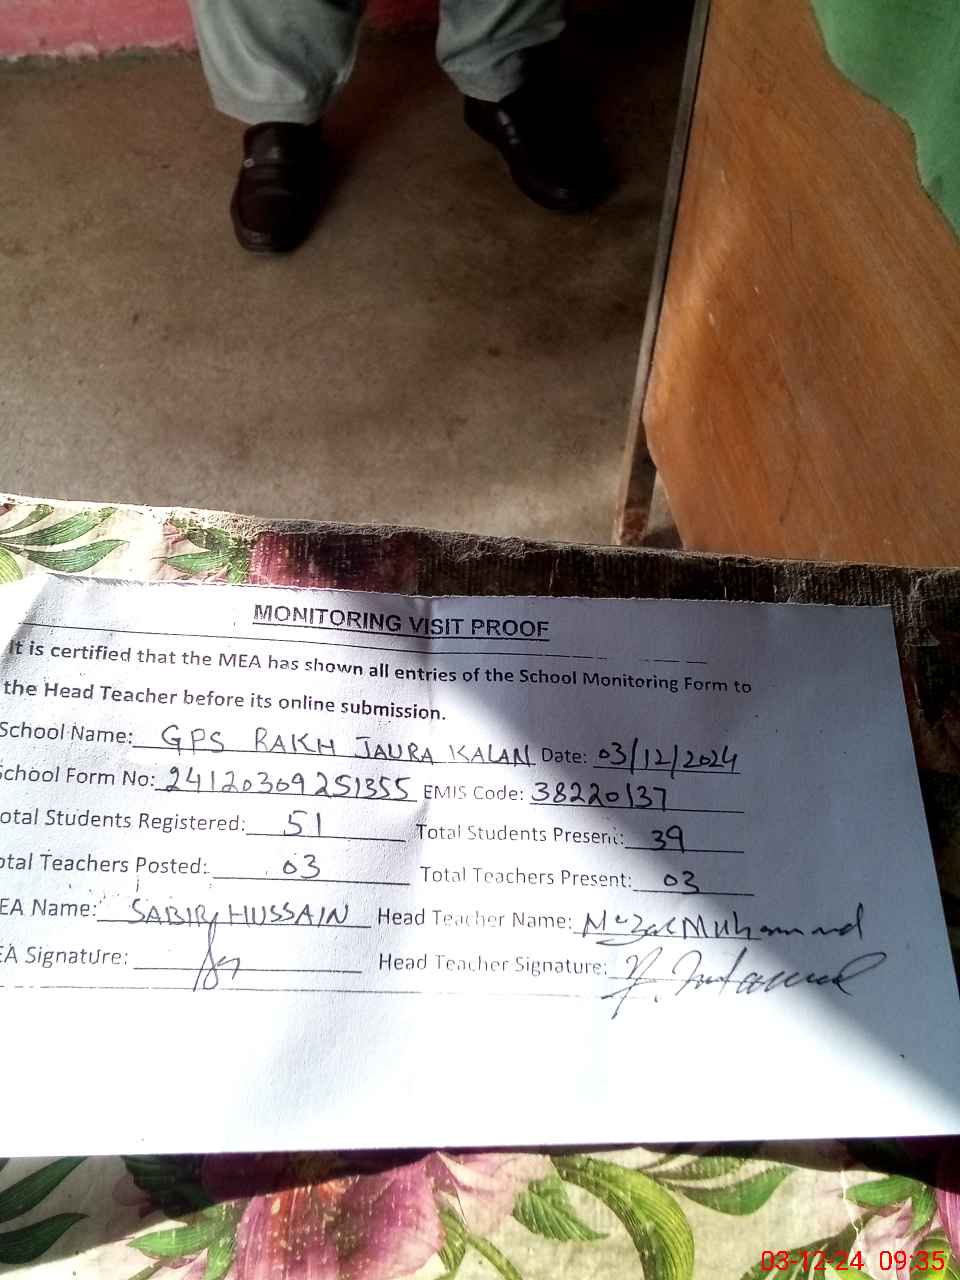 MONITORING VISIT PROOF
It is certified that the MEA has shown all entries of the School Monitoring Form to
the Head Teacher before its online submission.
School Name: GPS RAKH JAURA KALAN Date: 03/12/2024
School Form No: 24120309251355 EMIS Code: 38220137
otal Students Registered: 51 Total Students Present: 39
otal Teachers Posted: 03 Total Teachers Present: 03
EA Name: SABIR HUSSAIN Head Teacher Name: Muhammad
EA Signature: Head Teacher Signature:
03-12-24 09:35